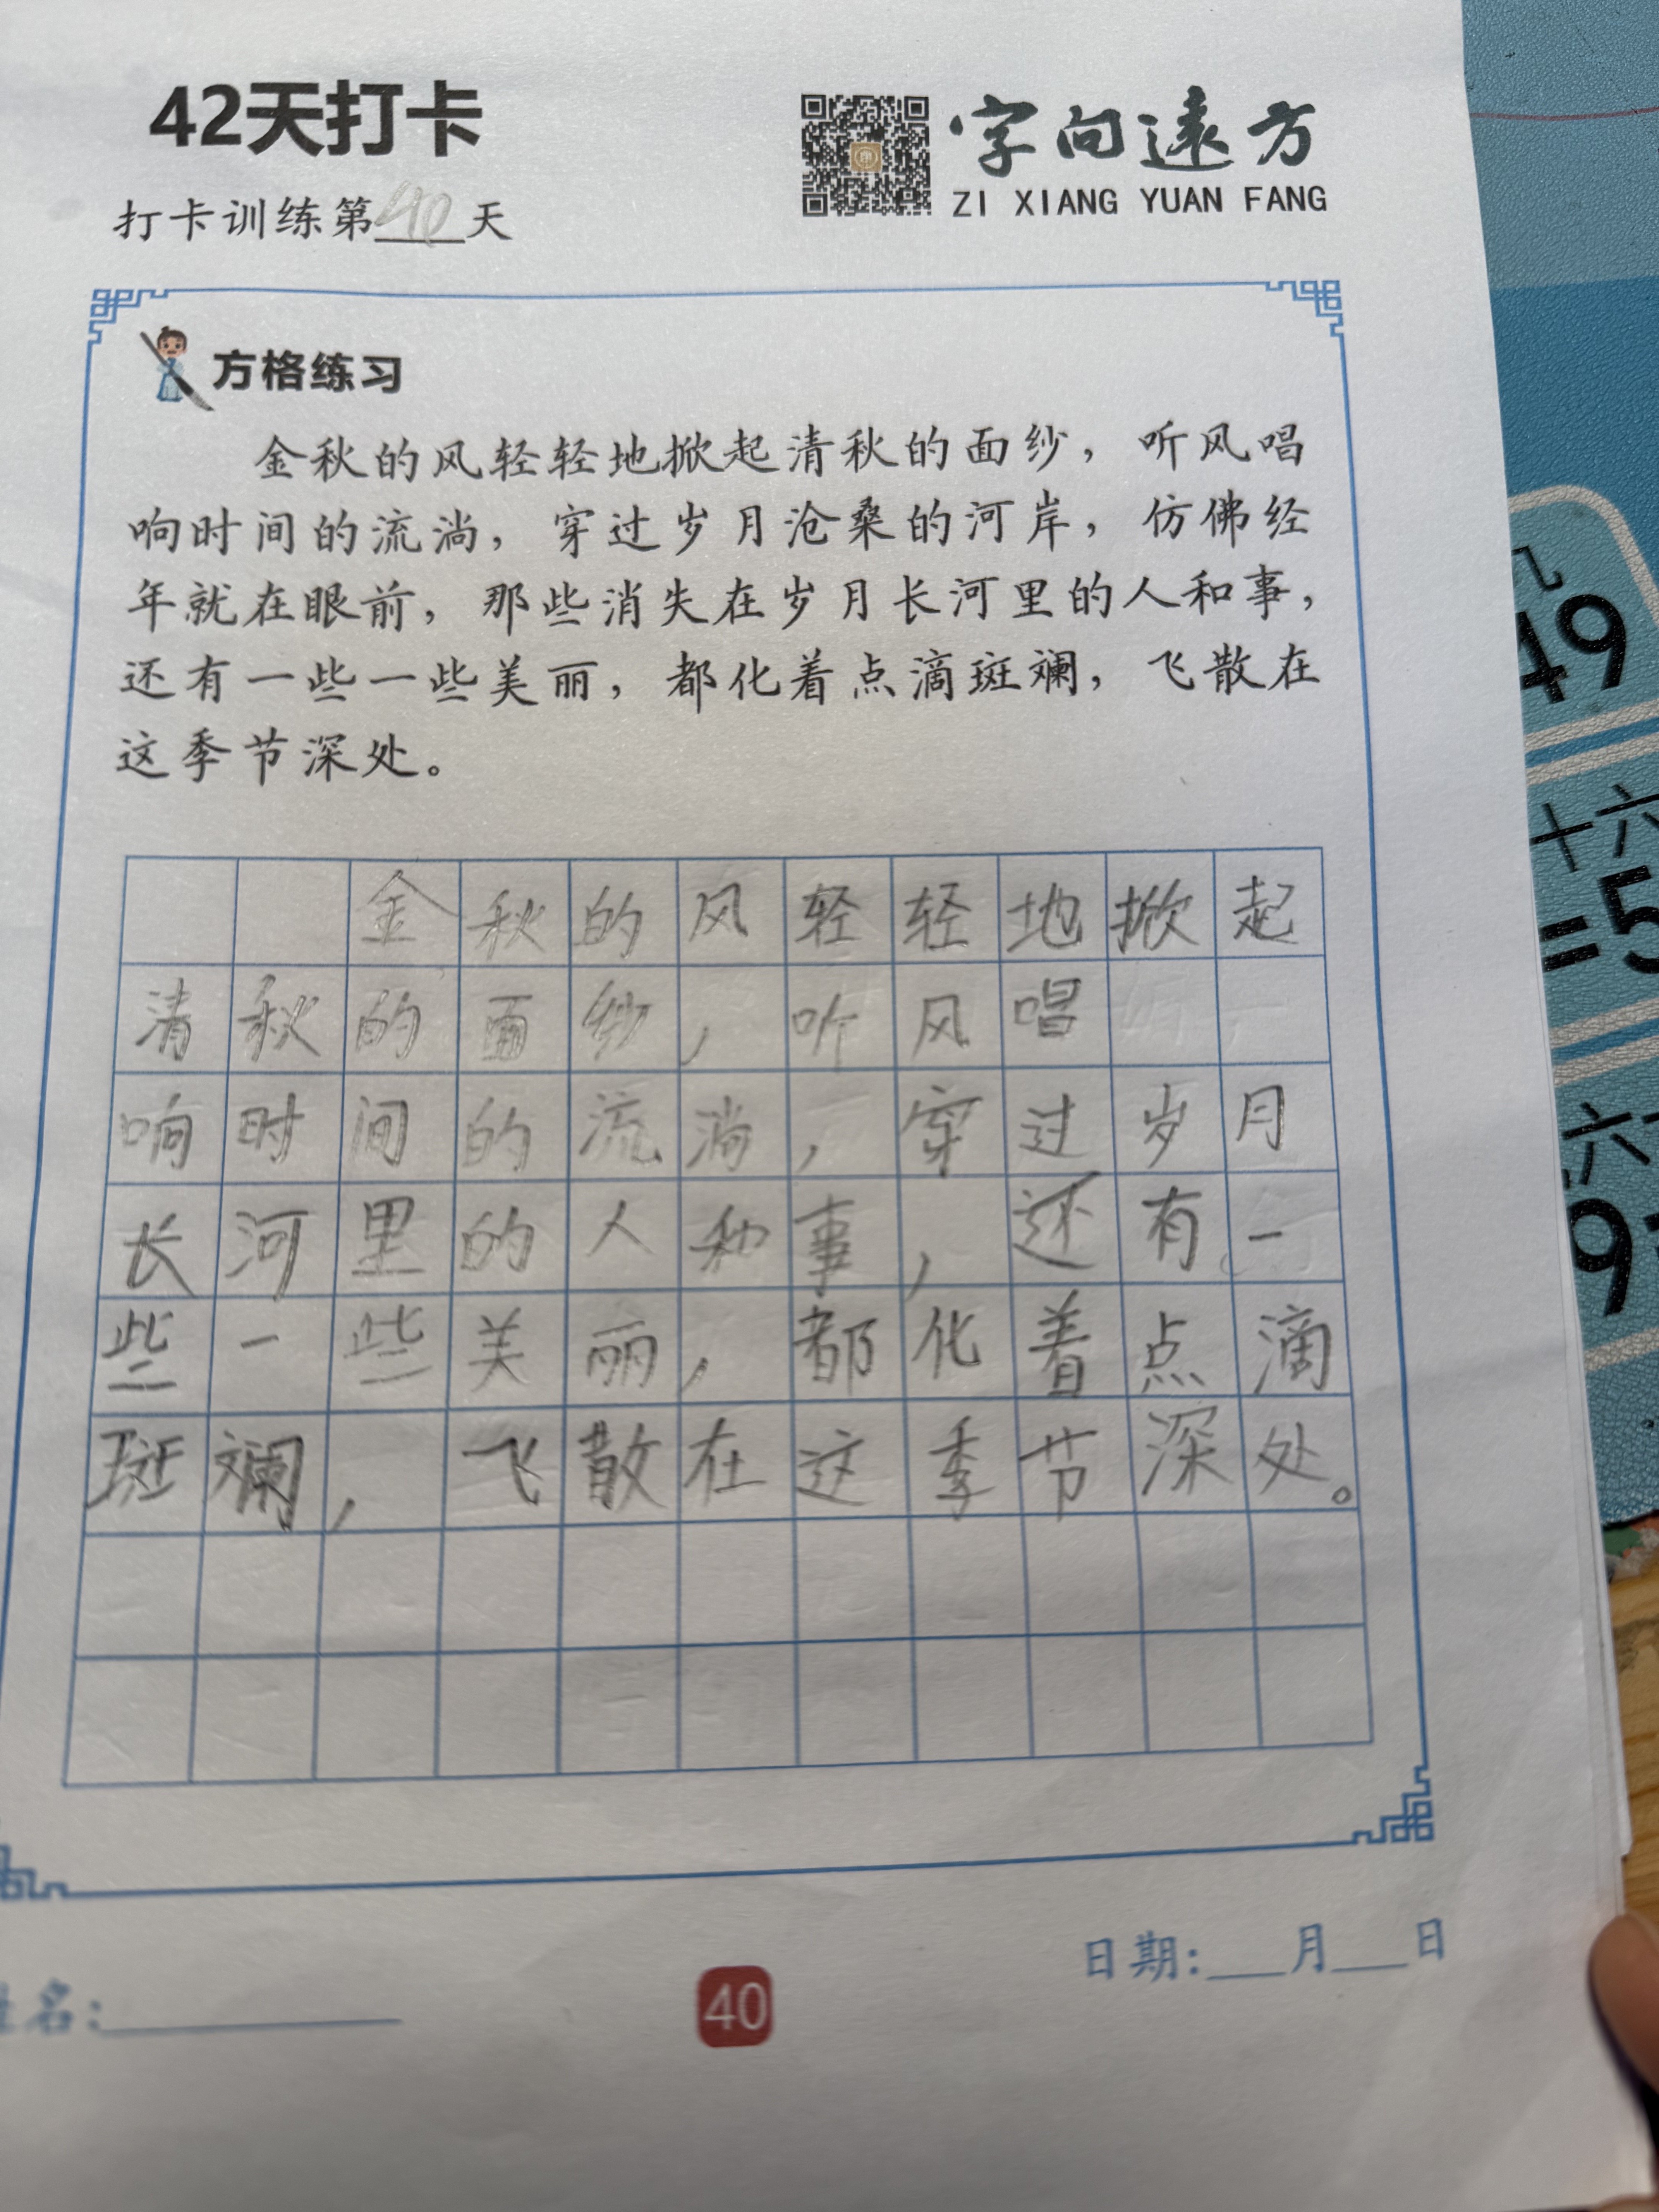 42天打卡
字向远方
ZI XIANG YUAN FANG
打卡训练第40天
方格练习
金秋的风轻轻地掀起清秋的面纱，听风唱
响时间的流淌，穿过岁月沧桑的河岸，仿佛经
年就在眼前，那些消失在岁月长河里的人和事，
还有一些一些美丽，都化着点滴斑斓，飞散在
这季节深处。
金秋的风轻轻地掀起
清秋的面纱，听风唱
响时间的流淌，穿过岁月
长河里的人和事，还有一
些一些美丽，都化着点滴
斑斓，飞散在这季节深处。
名：
日期：___月___日
40
九
49
十六
=5
六
9